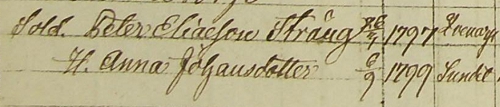 Sold. Peter Eliaeson Sträng 1797
H. Anna Johansdotter 8/9 1799 Sundt